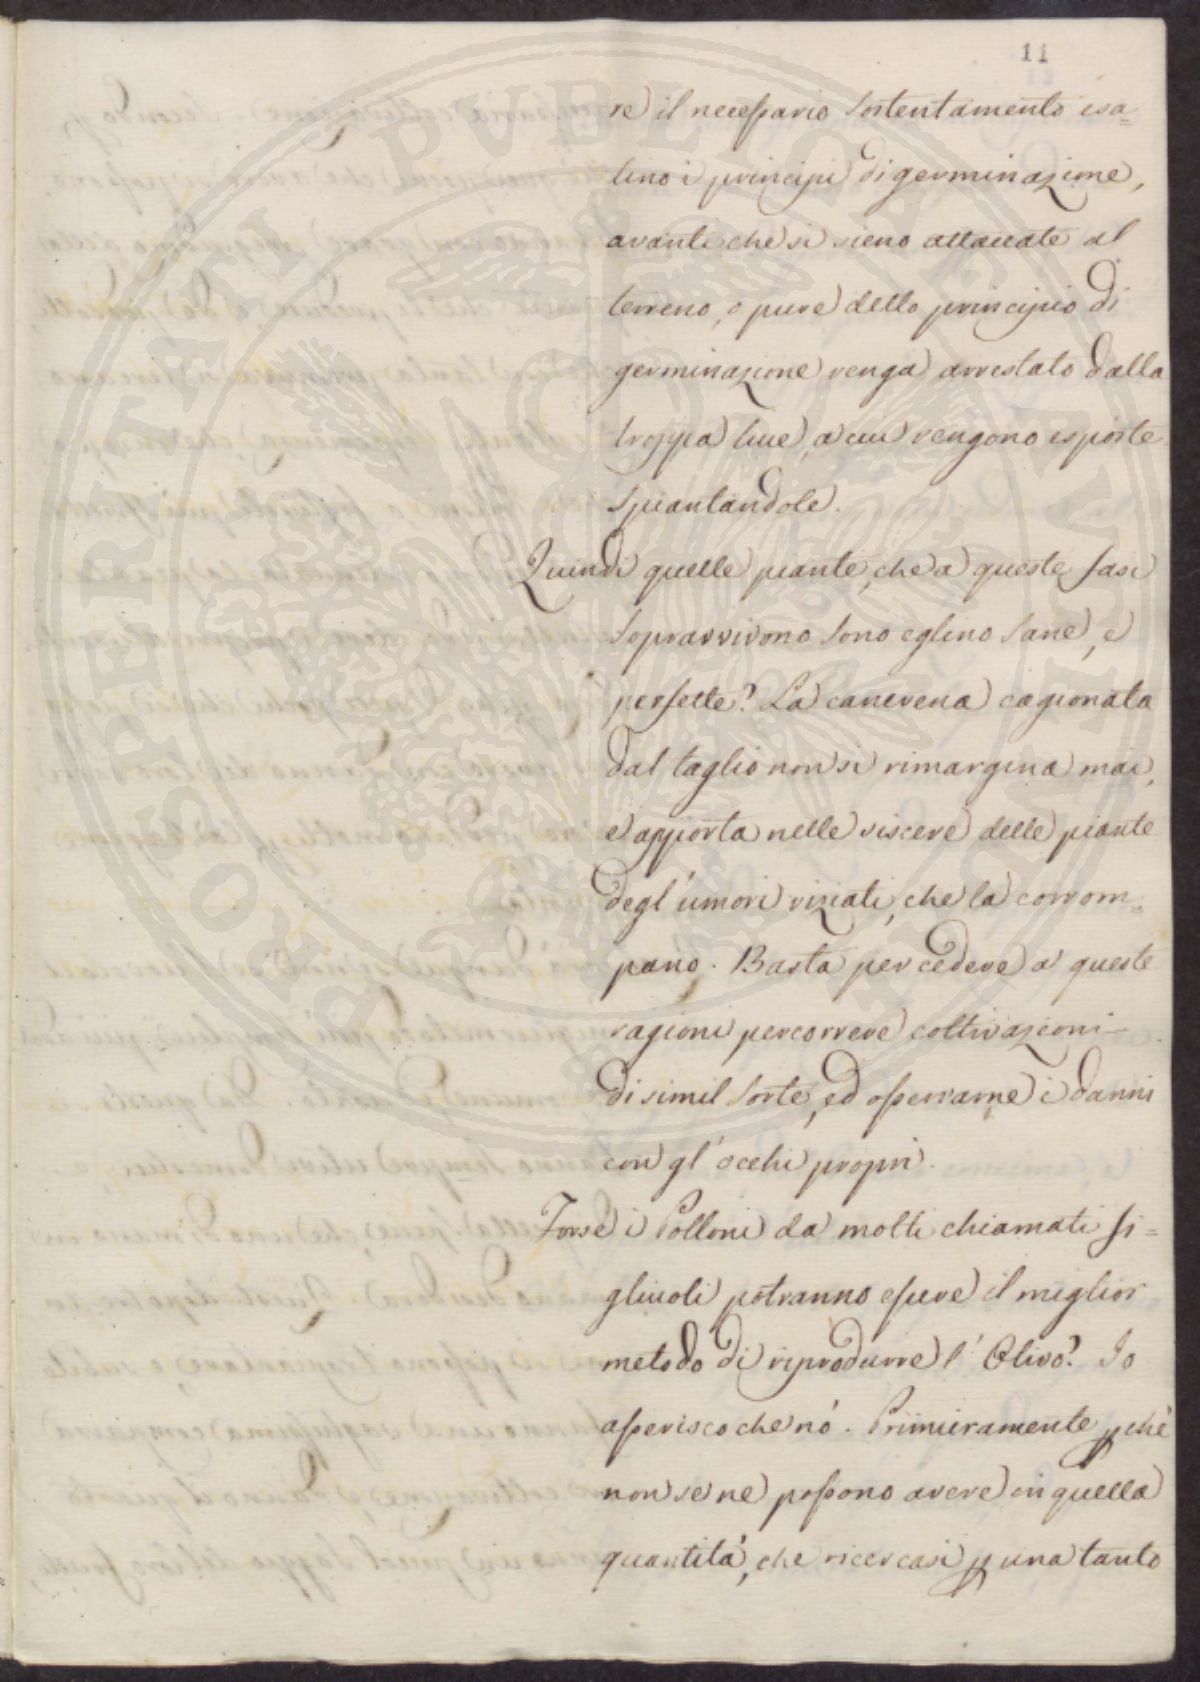 11
re il necessario sostentamento esa=
lino i principi di germinazione,
avanti che si sieno attaccate al
terreno, o pure dello principio di
germinazione venga arrestato dalla
troppa luce, a cui vengono esposte
spiantandole.
Quindi quelle piante, che a queste fasi
sopravvivono sono eglino sane, e
perfette? La cancrena cagionata
dal taglio non si rimargina mai,
e apporta nelle viscere delle piante
degl'umori viziati, che la corrom=
pano. Basta per cedere a queste
ragioni percorrere coltivazioni
di simil sorte, ed osservarne i danni
con gl'occhi propri.
Forse i Polloni da molti chiamati fi=
gliuoli potranno essere il miglior
metodo di riprodurre l'Olivo? Io
asserisco che nò. Primieramente pchè
non se ne possono avere in quella
quantità, che ricercasi p una tanto
PROSPERITATI PVBLICAE AVGENDAE